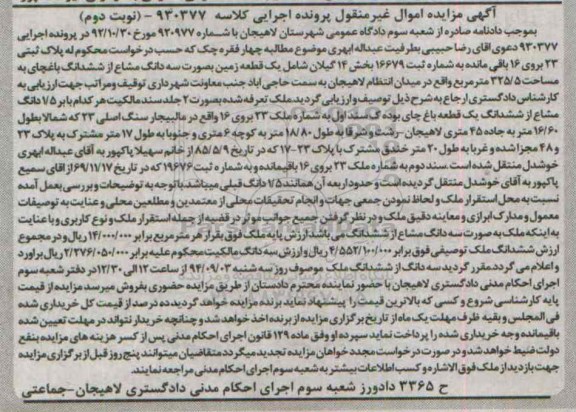 آگهی مزایده اموال غیرمنقول پرونده اجرایی کلاسه ۹۳۰۳۷۷ - (نوبت دوم)
بموجب دادنامه صادره از شعبه سوم دادگاه عمومی شهرستان لاهیجان با شماره ۹۳۰۹۷۷ مورخ ۹۲/۱۰/۳۰ در پرونده اجرایی
۹۳۰۳۷۷ دعوی اقای رضا حبیبی بطرفیت عبداله ابهری موضوع مطالبه چهار فقره چک که حسب درخواست محکوم له پلاک ثبتی
۲۳ بروی ۱۶ باقی مانده به شماره ثبت ۱۶۶۷۹ بخش ۱۴ گیلان شامل یک قطعه زمین بصورت سه دانگ مشاع از ششدانگ باغچای به
مساحت ۳۲۵/۵ مترمربع واقع در میدان انتظام لاهیجان به سمت حاجی آباد جنب معاونت شهرداری توقیف ومراتب جهت ارزیابی به
کارشناس دادگستری ارجاع به شرح ذیل توصیف و ارزیابی گردید ملک تعرفه شده بصورت ۲ جلد سند مالکیت هر کدام بابر ۱/۵ دانگ
مشاع از ششدانگ یک قطعه باغ چای بوده که سند اول به شماره ملک ۲۳ بروی ۱۶ واقع در مالبیجار سنگ اصلی ۲۳ که شمالا بطول
۱۶/۶۰ متر به جاده ۴۵ متری لاهیجان - رشت و شرقا به طول ۱۸/۸۰ متر به کوچه ۶ متری و جنوبا به طول ۱۷ متر مشترک به پلاک ۲۳
و ۴۸ مجزا شده و غربا به طول ۲۰ متر خندق مشترک با پلاک ۲۳-۱۷ که در تاریخ ۸۵/۵/۹ از خانم سهیلا پاکپور به آقای عبداله ابهری
خوشدل منتقل شده است. سند دوم به شماره ملک ۲۳ بروی ۱۶ باقیمانده و به شماره ثبت ۱۹۶۷۶ که در تاریخ ۶۹/۱۱/۱۷ از اقای سمیع
پاکپور به آقای خوشدل منتقل گردیده است و حدود اربعه آن همانند ۱/۵ دانگ قبلی میباشد باتوجه به توضیحات و بررسی بعمل آمده
نسبت به محل استقرار ملک و لحاظ نمودن جمعی جهات و انجام تحقیقات محلی از معتمدین و مطلعین محلی و عنایت به توصیفات
معمول و مدارک ابرازی و معاینه دقیق ملک و در نظر گرفتن جمیع جوانب موثر در قضیه از جمله استقرار ملک و نوع کاربری و با عنایت
به اینکه ملک به صورت سه دانگ مشاع از ششدانگ می باشد: ارزش پایه ملک فوق بقرار هر متر مربع برابر ۱۴/۰۰۰/۰۰۰ ریال و در مجموع
ارزش ششدانگ ملک توصیفی فوق برابر ۴/۵۵۲/۱۰۰/۰۰۰ ریال و ارزش سه دانگ مالکیت محکوم علیه برابر ۲/۲۷۶/۰۵۰/۰۰۰ ریال براورد
و اعلام می گردد مقرر گردید سه دانگ از ششدانگ ملک موصوف روز سه شنبه ۹۴/۰۹/۰۳ از ساعت ۱۲ الی ۱۲/۳۰ در دفتر شعبه سوم
اجرای احکام مدنی دادگستری لاهیجان با حضور نماینده محترم دادستان از طریق مزایده حضوری بفروش میرسد مزایده از قیمت
پایه کارشناسی شروع و کسی که بالاترین قیمت را پیشنهاد نماید برنده مزایده خواهد گردید ده درصد از قیمت کل خریداری شده
فی المجلس و بقیه ظرف مهلت یک ماه از تاریخ برگزاری مزایده از برنده اخذ خواهد شد و چنانچه خریدار نتواند در مهلت تعیین شده
باقیمانده وجه خریداری شده را پرداخت نماید سپرده او وفق ماده ۱۲۹ قانون اجرای احکام مدنی پس از کسر هزینه های مزایده بنفع
دولت ضبط خواهد شد و در صورت درخواست مجدد خواهان مزایده تجدید میگردد متقاضیان میتوانند پنج روز قبل از برگزاری مزایده
جهت بازدید از ملک فوق الاشاره و کسب اطلاعات بیشتر به شعبه سوم اجرای احکام مدنی مراجعه نمایند.
ح ۳۳۶۵ دادورز شعبه سوم اجرای احکام مدنی دادگستری لاهیجان - جماعتی